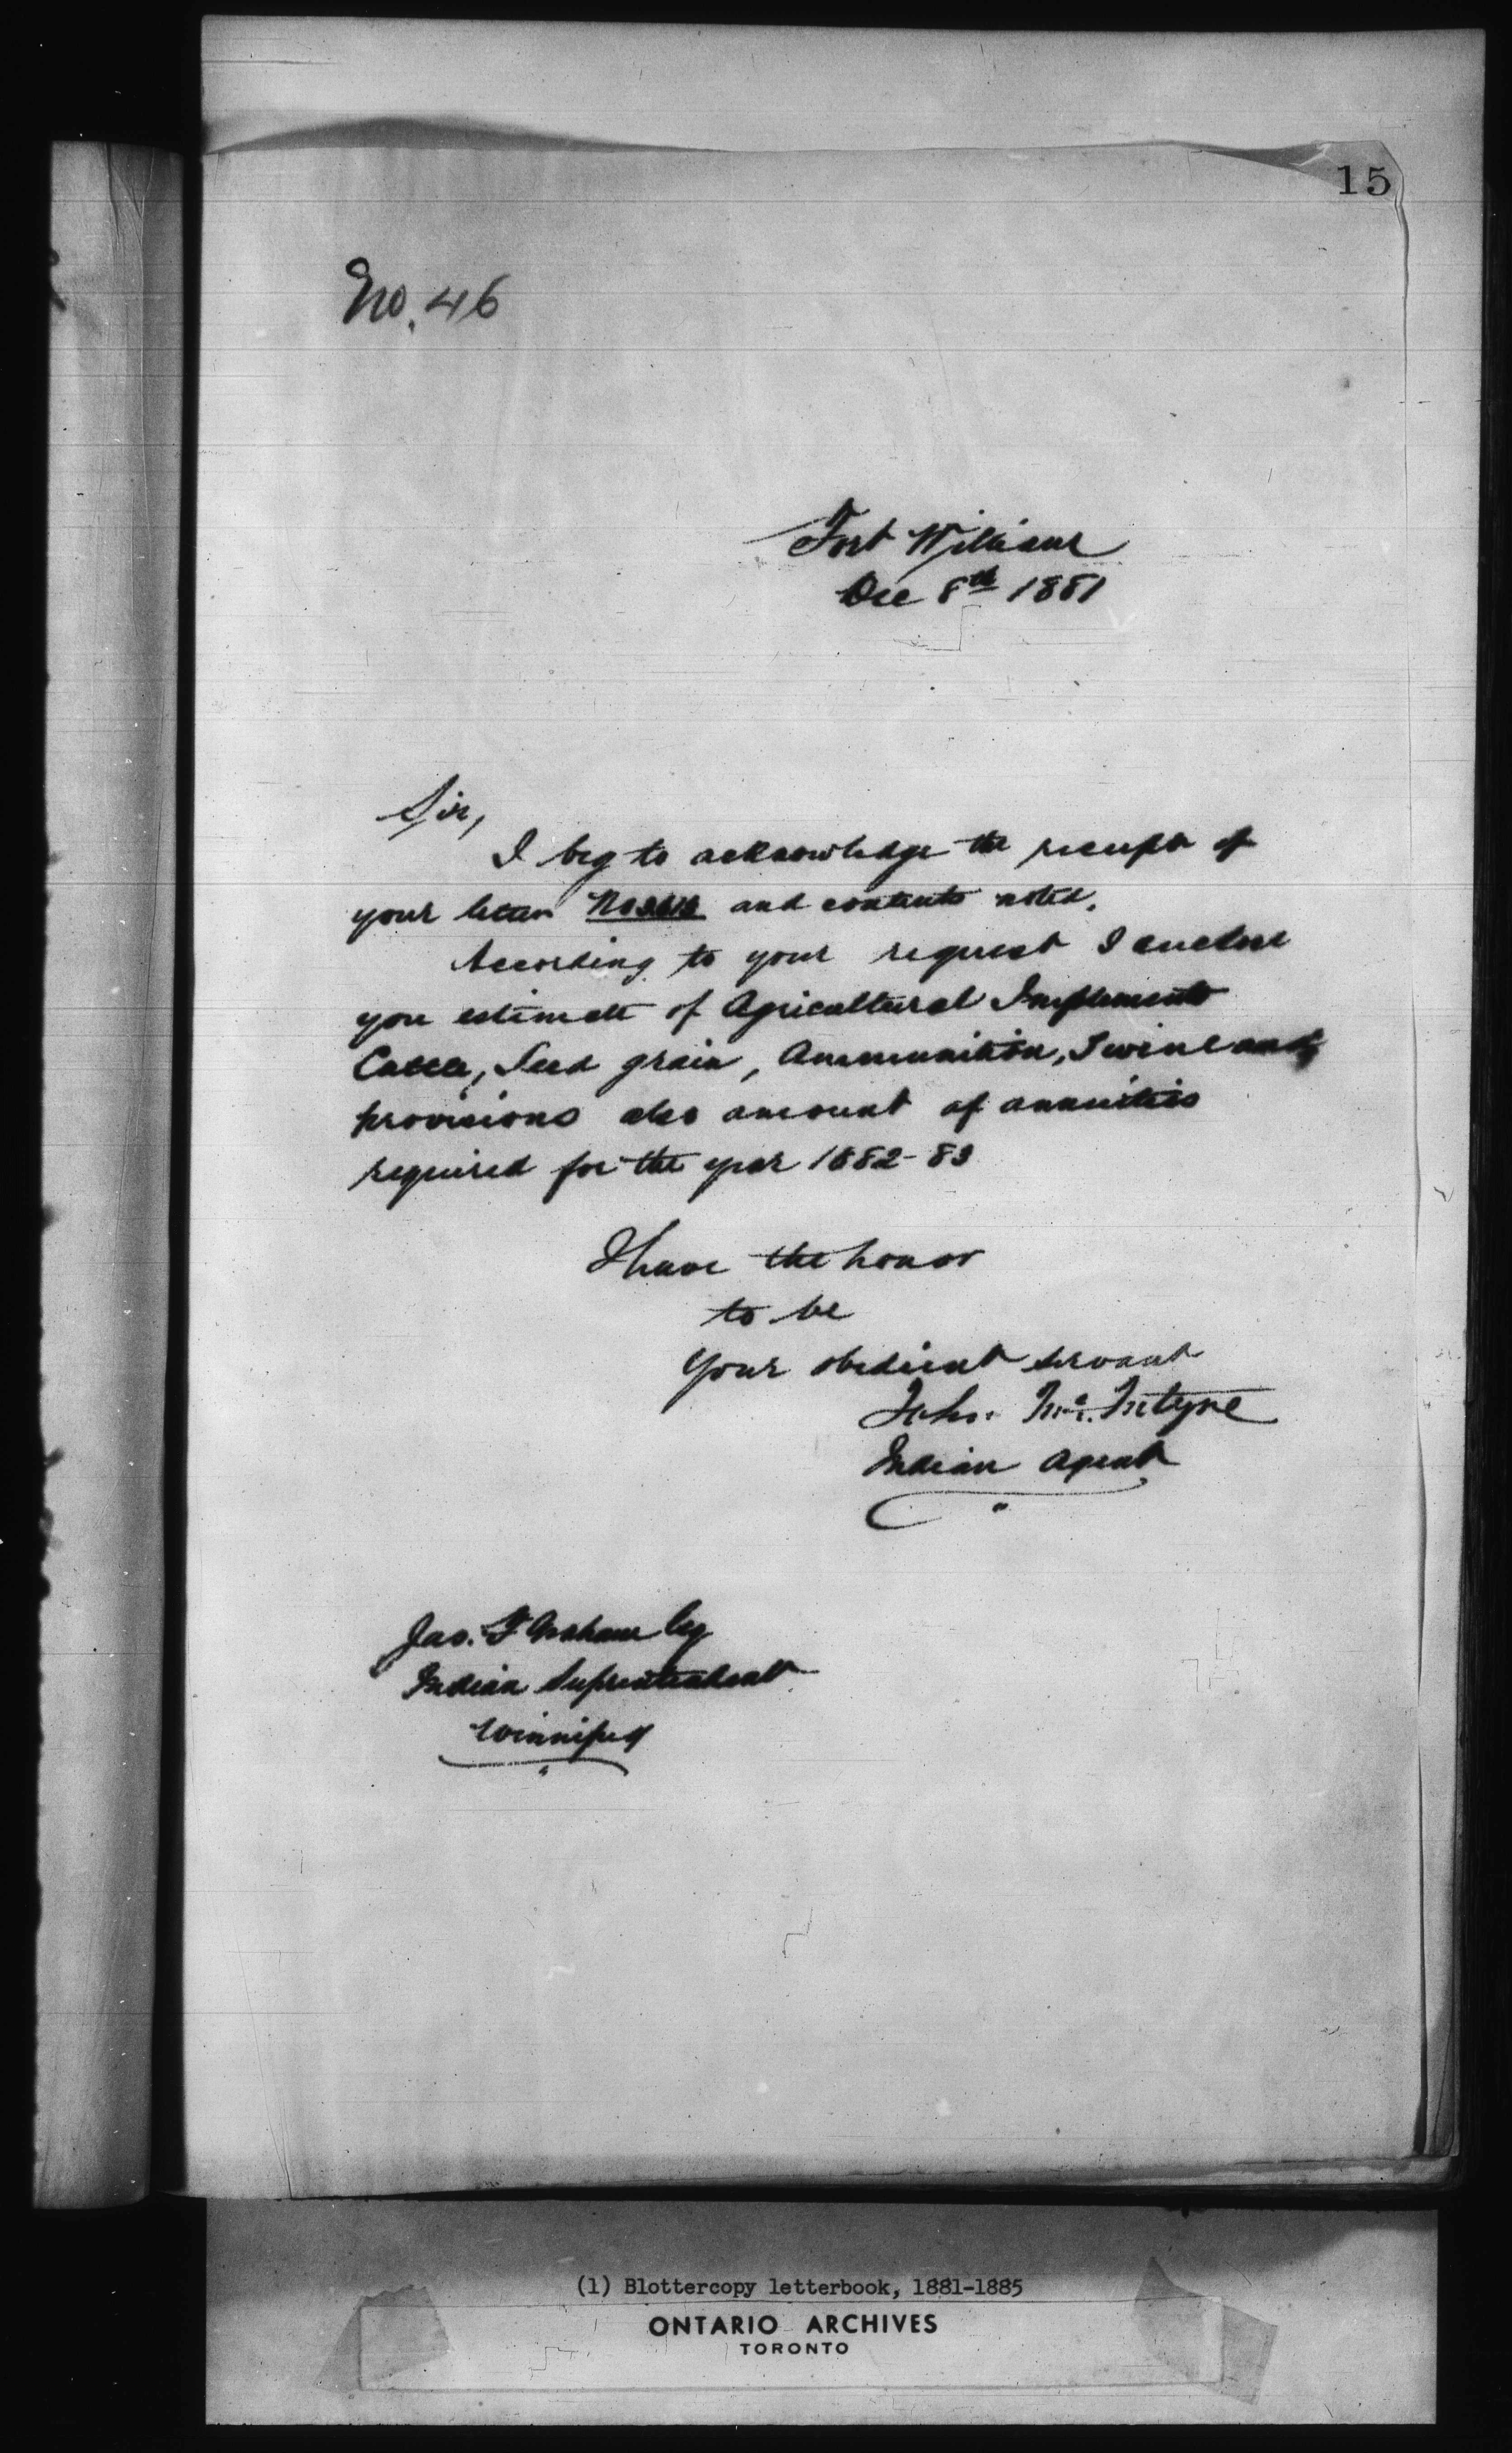 15
No. 46
Fort William
Dec 8th 1881
Sir,
I beg to acknowledge the receipt of
your letter and contents noted.
According to your request I enclose
you estimate of Agricultural Implements
Cattle, Seed grain, Ammunition, Twine and
provisions also amount of annuities
required for the year 1882-83
I have the honor
to be
Your obedient servant
John McIntyre
Indian Agent
Jas. F Graham Esq
Indian Suprintendent
Winnipeg
(1) Blottercopy letterbook, 1881-1885
ONTARIO ARCHIVES
TORONTO